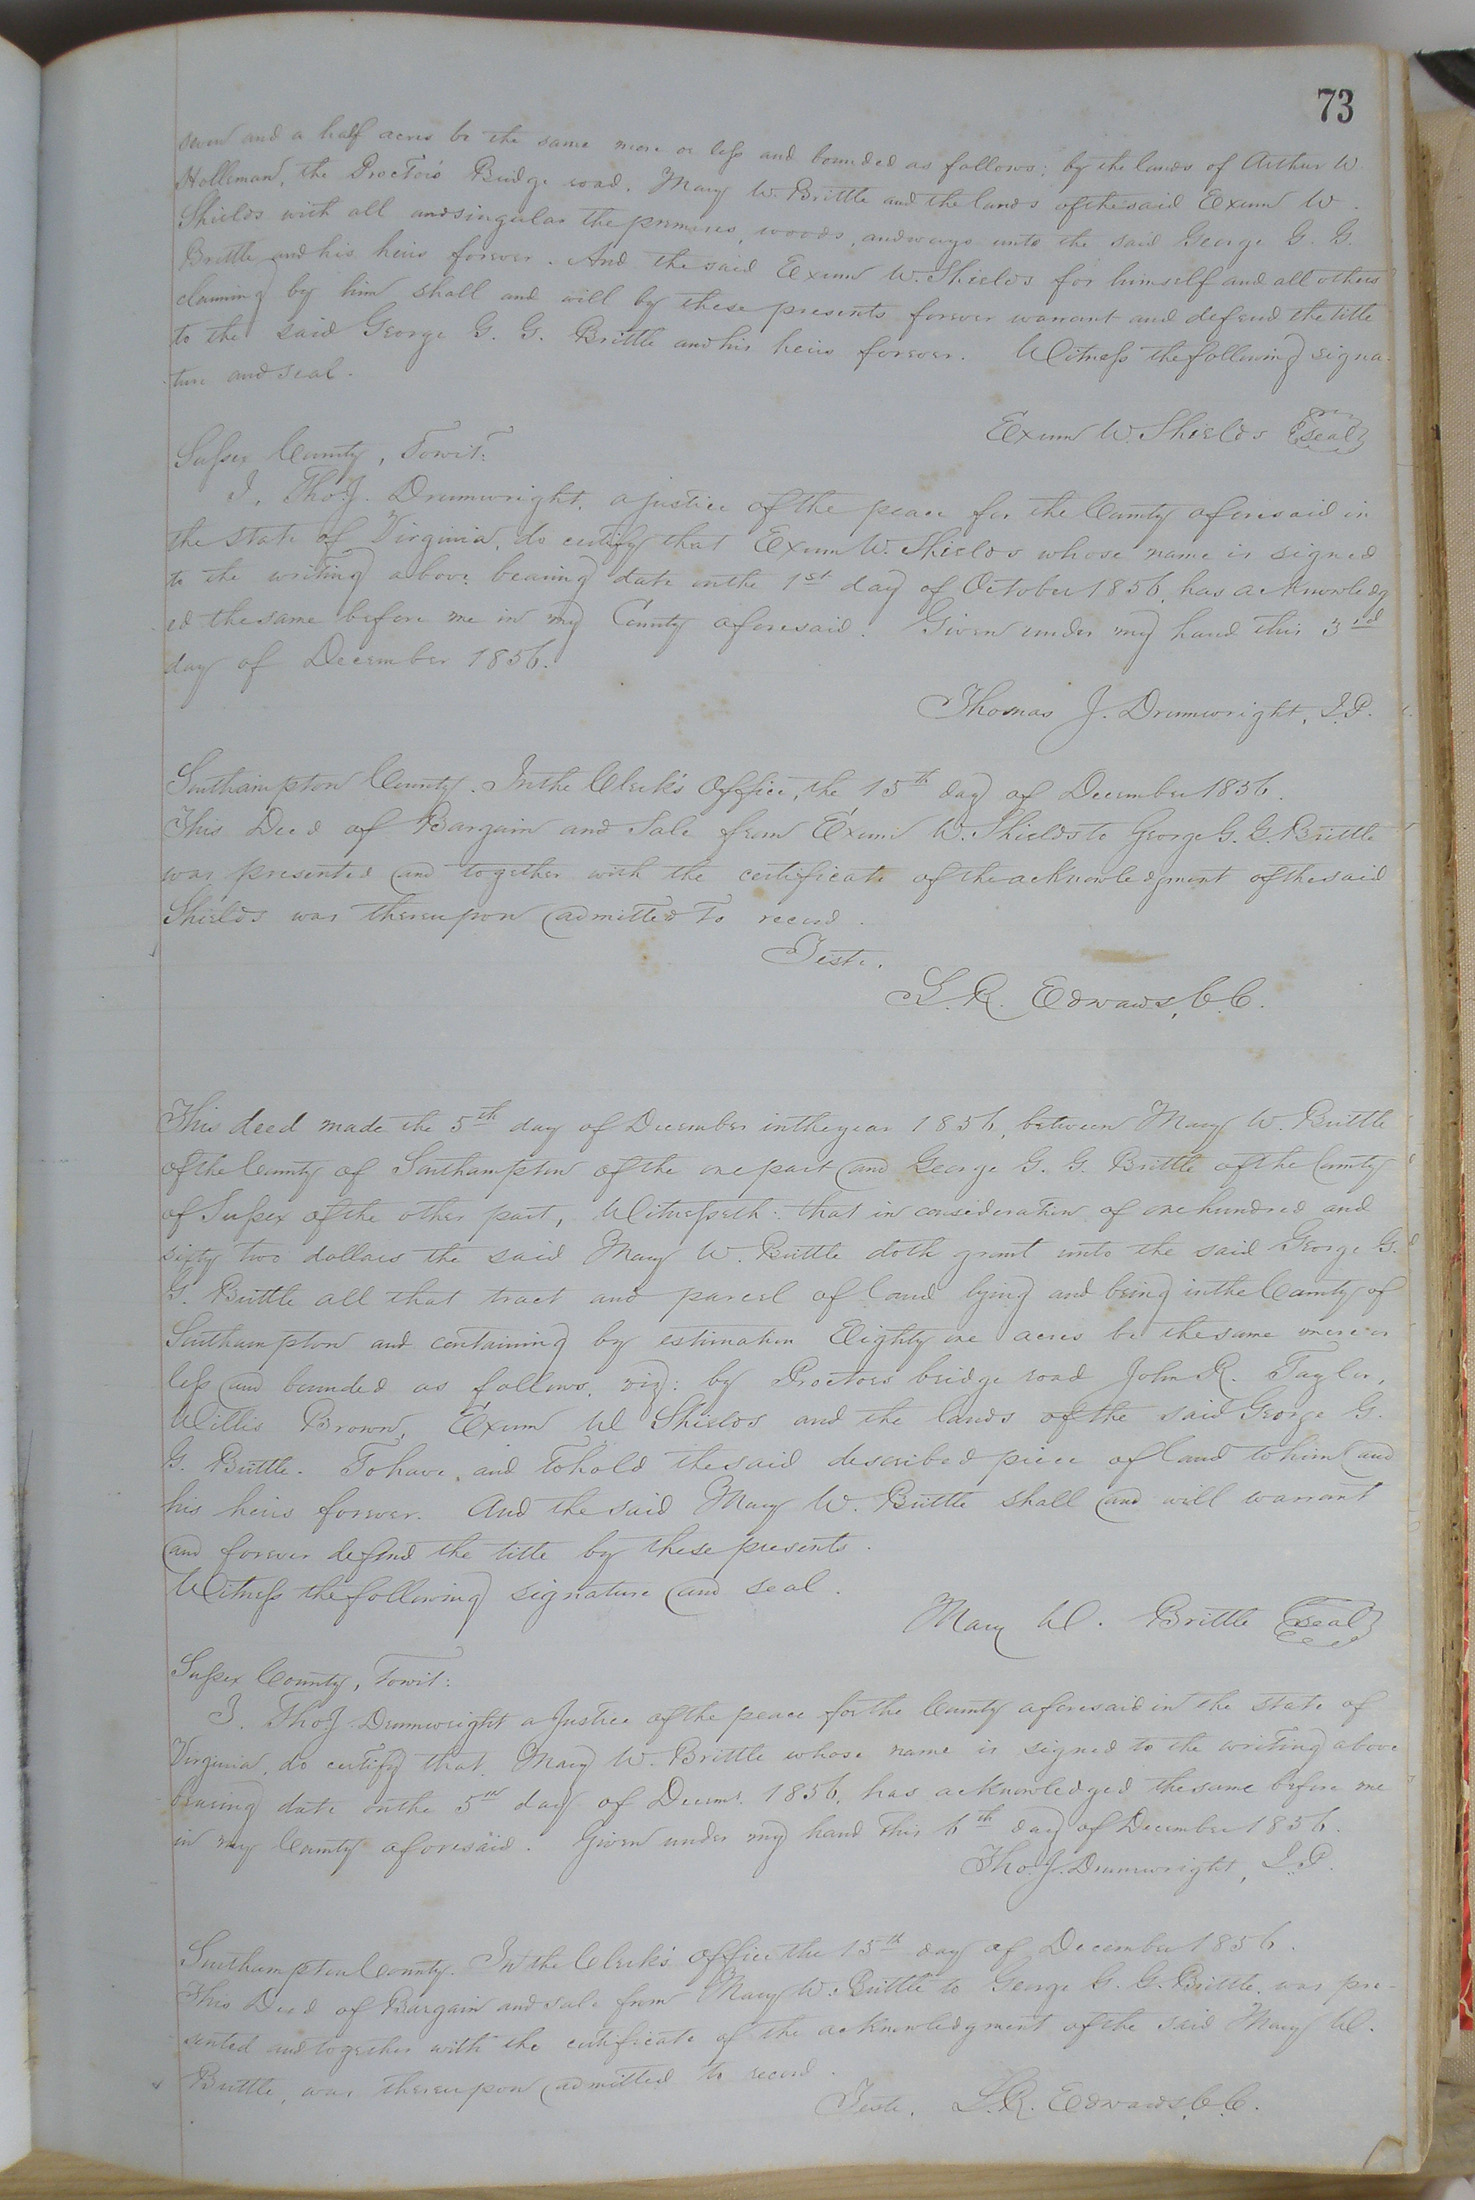 73
seven and a half acres be the same more or less and bounded as follows; by the lands of Arthur W
Holleman, the Proctor's Bridge road, Mary W. Brittle and the lands of the said Exum W.
Shields with all and singular the premises, woods, and ways unto the said George G. G.
Brittle and his heirs forever. And the said Exum W. Shields for himself and all others
claiming by him shall and will by these presents forever warrant and defend the title
to the said George G. G. Brittle and his heirs forever. Witness the following signa-
ture and seal.
Exum W. Shields seal
Sussex County, Towit:
I, Tho. J. Drumwright, a justice of the peace for the County aforesaid in
the State of Virginia, do certify that Exum W. Shields whose name is signed
to the writing above bearing date on the 1st day of October 1856, has acknowledg
ed the same before me in my County aforesaid. Given under my hand this 3rd
day of December 1856.
Thomas J. Drumwright, J.P.
Southampton County. In the Clerk's Office, the 15th day of December 1856.
This Deed of Bargain and Sale from Exum W. Shields to George G. G. Brittle
was presented and together with the certificate of the acknowledgment of the said
Shields was thereupon admitted to record.
Teste.
L. R. Edwards, C.C.
This deed made the 5th day of December in the year 1856, between Mary W. Brittle
of the County of Southampton of the one part and George G. G. Brittle of the County
of Sussex of the other part, Witnesseth: that in consideration of one hundred and
sixty two dollars the said Mary W. Brittle doth grant unto the said George G.
G. Brittle all that tract and parcel of land lying and being in the County of
Southampton and containing by estimation Eighty one acres be the same more or
less and bounded as follows, viz: by Proctors bridge road John R. Taylor,
Willis Brown, Exum W Shields and the lands of the said George G.
G. Brittle. To have, and to hold the said described piece of land to him and
his heirs forever. And the said Mary W. Brittle shall and will warrant
and forever defend the title by these presents.
Witness the following signature and seal.
Mary W. Brittle seal
Sussex County, Towit:
I, Tho J. Drumwright a Justice of the peace for the County aforesaid in the State of
Virginia, do certify that, Mary W. Brittle whose name is signed to the writing above
bearing date on the 5th day of Decemr. 1856, has acknowledged the same before me
in my County aforesaid. Given under my hand this 6th day of December 1856.
Tho. J. Drumwright, J.P.
Southampton County. In the Clerk's office the 15th day of December 1856.
This Deed of Bargain and sale from Mary W. Brittle to George G. G. Brittle, was pre-
sented and together with the certificate of the acknowledgment of the said Mary W.
Brittle, was thereupon admitted to record.
Teste, L. R. Edwards, C.C.